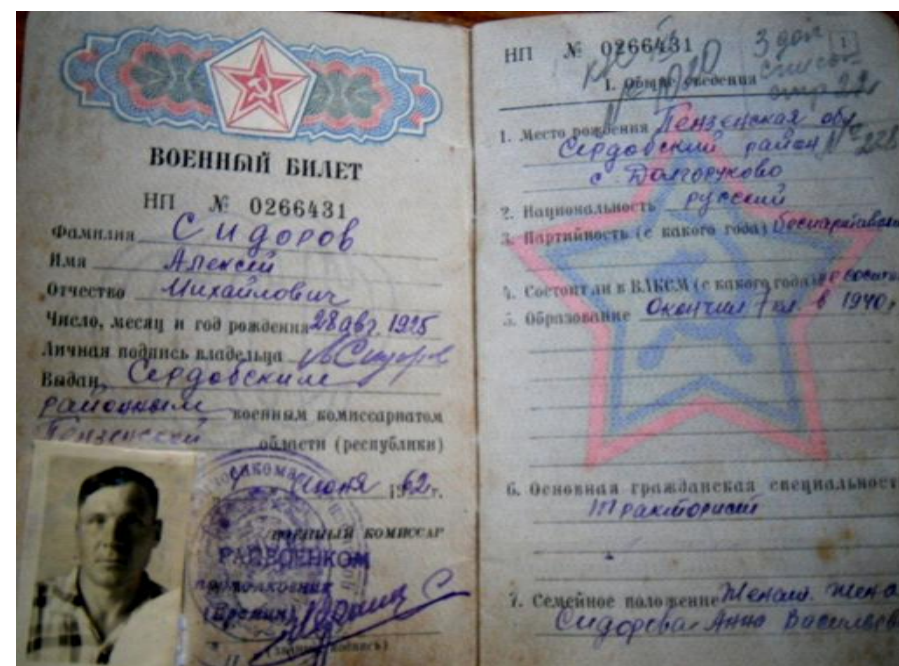 ВОЕННЫЙ БИЛЕТ
НП № 0266431
Фамилия Сидоров
Имя Алексей
Отчество Михайлович
Число, месяц и год рождения 28 авг. 1925
Личная подпись владельца АСидоров
Выдан Сердобским
районным военным комиссариатом
Пензенской области (республики)
июня 1962 г.
военный комиссар
РАЙВОЕНКОМ
подполковник
НП № 0266431
1
I. Общие сведения
1. Место рождения Пензенская обл
Сердобский район
с Долгоруково
2. Национальность русский
3. Партийность (с какого года) беспартийный
4. Состоит ли в ВЛКСМ (с какого года)
5. Образование Окончил 7 кл. в 1940 г
6. Основная гражданская специальность
Тракторист
7. Семейное положение Женат. жена
Сидорова Анна